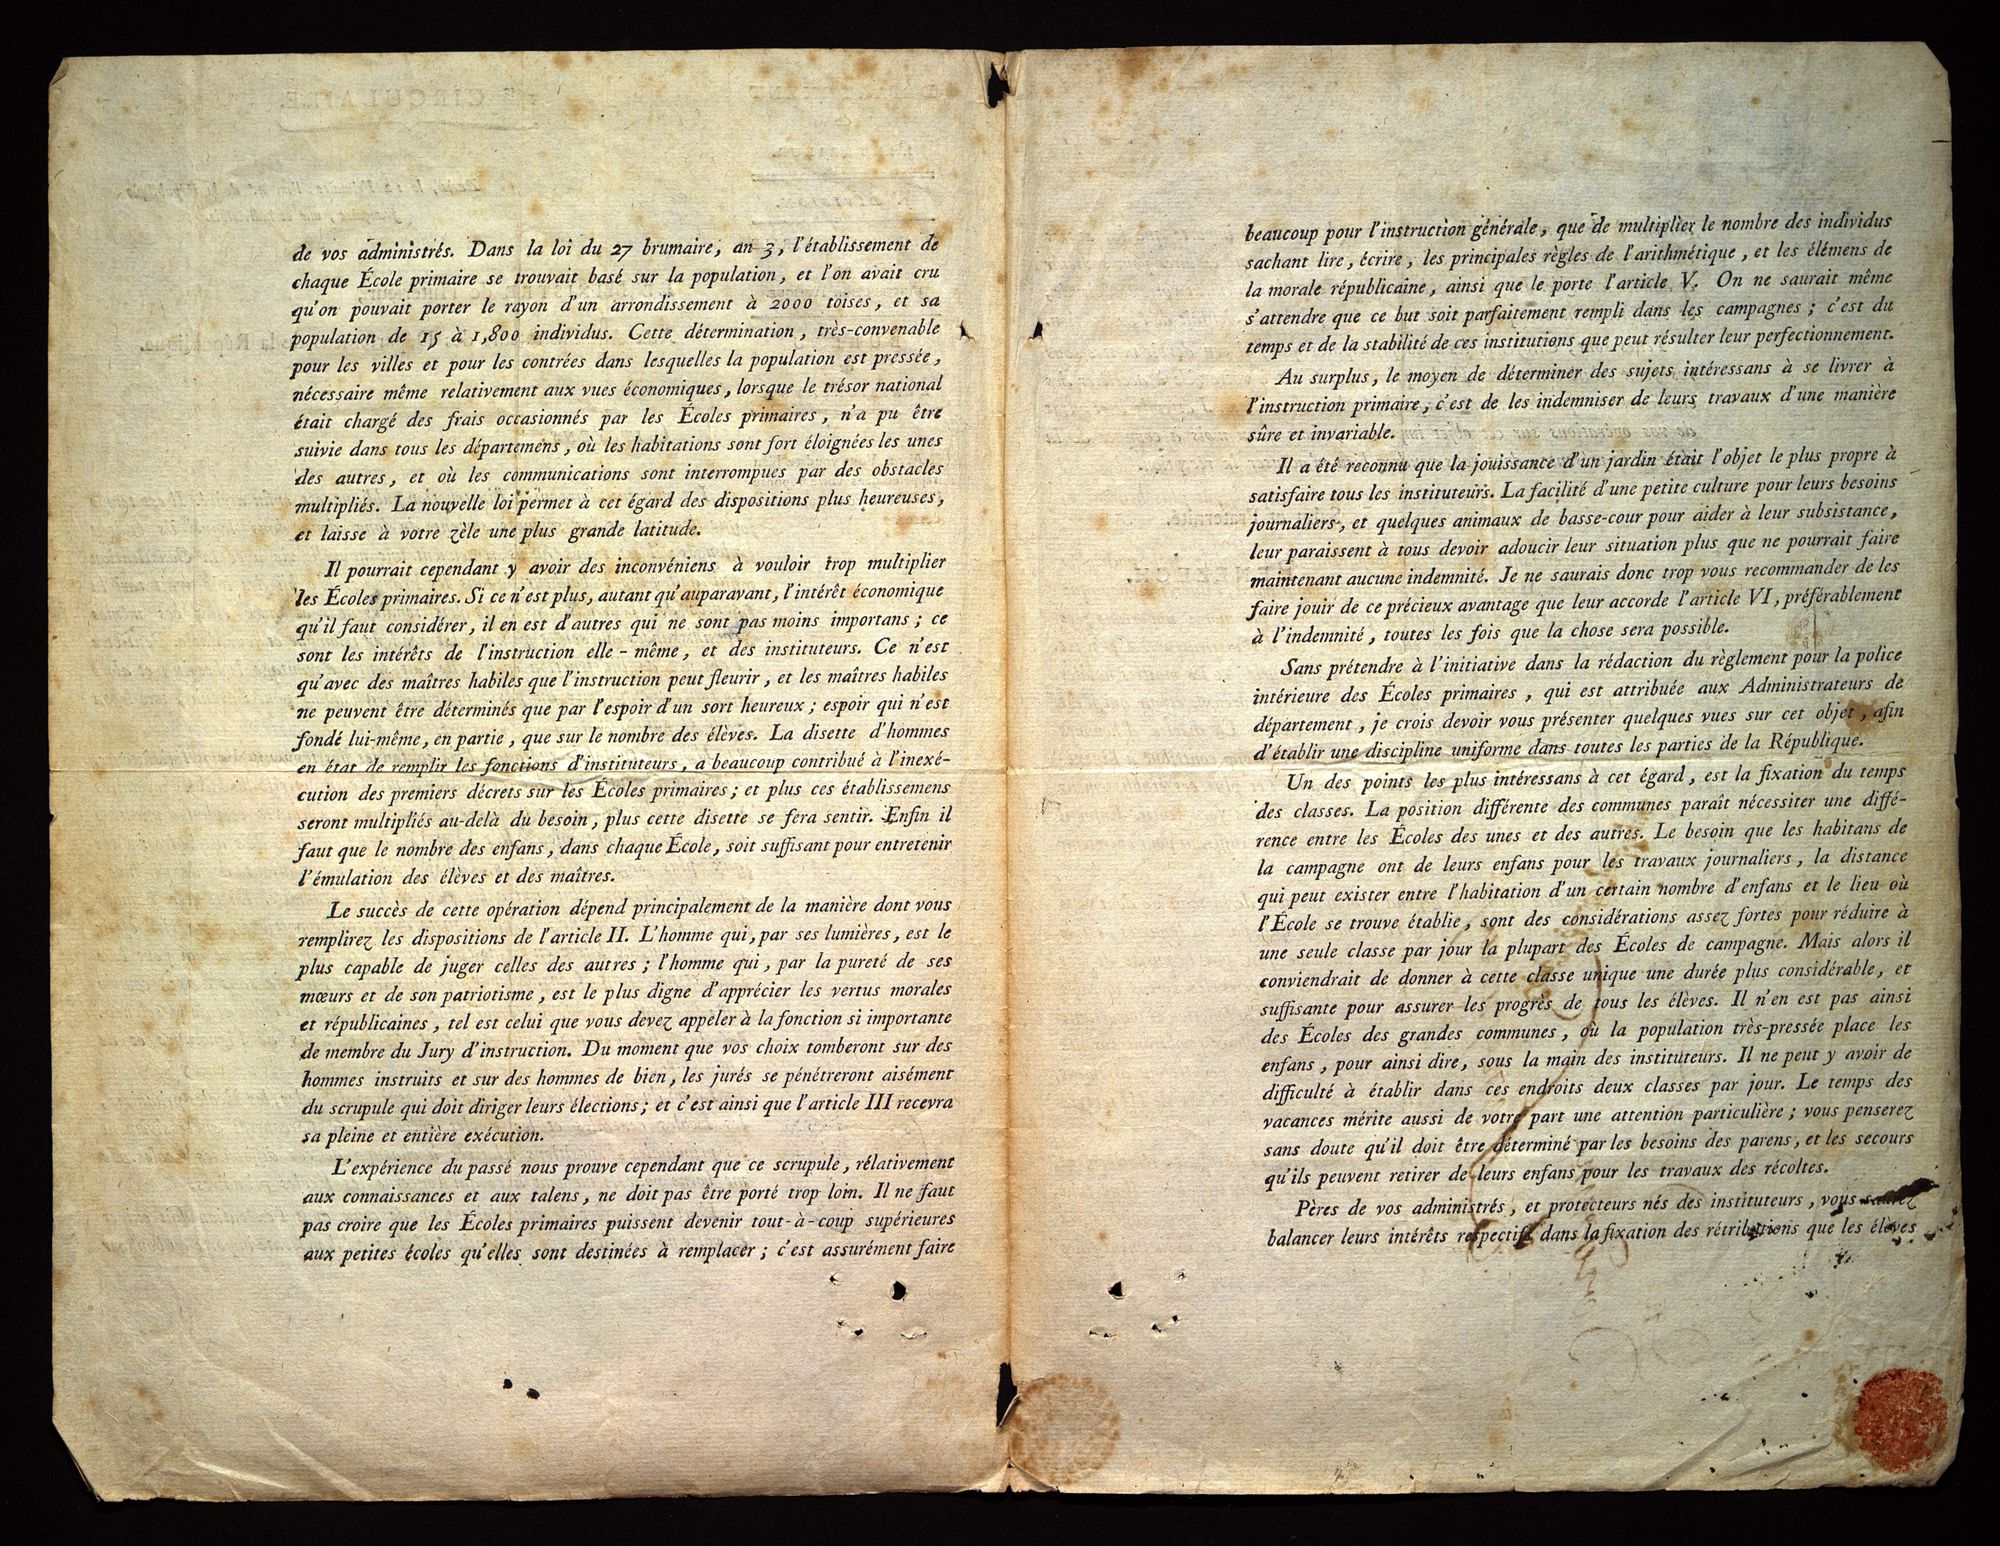 de vos administrés. Dans la loi du 27 brumaire, an 3, l'établissement de
chaque École primaire se trouvait basé sur la population, et l'on avait cru
qu'on pouvait porter le rayon d'un arrondissement à 2000 toises, et sa
population de 15 à 1,800 individus. Cette détermination, très-convenable
pour les villes et pour les contrées dans lesquelles la population est pressée,
nécessaire même relativement aux vues économiques, lorsque le trésor national
était chargé des frais occasionnés par les Écoles primaires, n'a pu être
suivie dans tous les départemens, où les habitations sont fort éloignées les unes
des autres, et où les communications sont interrompues par des obstacles
multipliés. La nouvelle loi permet à cet égard des dispositions plus heureuses,
et laisse à votre zèle une plus grande latitude.
Il pourrait cependant y avoir des inconvéniens à vouloir trop multiplier
les Écoles primaires. Si ce n'est plus, autant qu'auparavant, l'intérêt économique
qu'il faut considérer, il en est d'autres qui ne sont pas moins importans; ce
sont les intérêts de l'instruction elle-même, et des instituteurs. Ce n'est
qu'avec des maîtres habiles que l'instruction peut fleurir, et les maîtres habiles
ne peuvent être déterminés que par l'espoir d'un sort heureux; espoir qui n'est
fondé lui-même, en partie, que sur le nombre des élèves. La disette d'hommes
en état de remplir les fonctions d'instituteurs, a beaucoup contribué à l'inexé-
cution des premiers décrets sur les Écoles primaires; et plus ces établissemens
seront multipliés au-delà du besoin, plus cette disette se fera sentir. Enfin il
faut que le nombre des enfans, dans chaque École, soit suffisant pour entretenir
l'émulation des élèves et des maîtres.
Le succès de cette opération dépend principalement de la manière dont vous
remplirez les dispositions de l'article II. L'homme qui, par ses lumières, est le
plus capable de juger celles des autres; l'homme qui, par la pureté de ses
mœurs et de son patriotisme, est le plus digne d'apprécier les vertus morales
et républicaines, tel est celui que vous devez appeler à la fonction si importante
de membre du Jury d'instruction. Du moment que vos choix tomberont sur des
hommes instruits et sur des hommes de bien, les jurés se pénétreront aisément
du scrupule qui doit diriger leurs élections; et c'est ainsi que l'article III recevra
sa pleine et entière exécution.
L'expérience du passé nous prouve cependant que ce scrupule, rélativement
aux connaissances et aux talens, ne doit pas être porté trop loin. Il ne faut
pas croire que les Écoles primaires puissent devenir tout-à-coup supérieures
aux petites écoles qu'elles sont destinées à remplacer; c'est assurément faire
beaucoup pour l'instruction générale, que de multiplier le nombre des individus
sachant lire, écrire, les principales règles de l'arithmétique, et les élémens de
la morale républicaine, ainsi que le porte l'article V. On ne saurait même
s'attendre que ce but soit parfaitement rempli dans les campagnes; c'est du
temps et de la stabilité de ces institutions que peut résulter leur perfectionnement.
Au surplus, le moyen de déterminer des sujets intéressans à se livrer à
l'instruction primaire, c'est de les indemniser de leurs travaux d'une manière
sûre et invariable.
Il a été reconnu que la jouissance d'un jardin était l'objet le plus propre à
satisfaire tous les instituteurs. La facilité d'une petite culture pour leurs besoins
journaliers, et quelques animaux de basse-cour pour aider à leur subsistance,
leur paraissent à tous devoir adoucir leur situation plus que ne pourrait faire
maintenant aucune indemnité. Je ne saurais donc trop vous recommander de les
faire jouir de ce précieux avantage que leur accorde l'article VI, préférablement
à l'indemnité, toutes les fois que la chose sera possible.
Sans prétendre à l'initiative dans la rédaction du règlement pour la police
intérieure des Écoles primaires, qui est attribuée aux Administrateurs de
département, je crois devoir vous présenter quelques vues sur cet objet, afin
d'établir une discipline uniforme dans toutes les parties de la République.
Un des points les plus intéressans à cet égard, est la fixation du temps
des classes. La position différente des communes paraît nécessiter une diffé-
rence entre les Écoles des unes et des autres. Le besoin que les habitans de
la campagne ont de leurs enfans pour les travaux journaliers, la distance
qui peut exister entre l'habitation d'un certain nombre d'enfans et le lieu où
l'École se trouve établie, sont des considérations assez fortes pour réduire à
une seule classe par jour la plupart des Écoles de campagne. Mais alors il
conviendrait de donner à cette classe unique une durée plus considérable, et
suffisante pour assurer les progrès de tous les élèves. Il n'en est pas ainsi
des Écoles des grandes communes, où la population très-pressée place les
enfans, pour ainsi dire, sous la main des instituteurs. Il ne peut y avoir de
difficulté à établir dans ces endroits deux classes par jour. Le temps des
vacances mérite aussi de votre part une attention particulière; vous penserez
sans doute qu'il doit être déterminé par les besoins des parens, et les secours
qu'ils peuvent retirer de leurs enfans pour les travaux des récoltes.
Pères de vos administrés, et protecteurs nés des instituteurs, vous saurez
balancer leurs intérêts respectifs dans la fixation des rétributions que les élèves